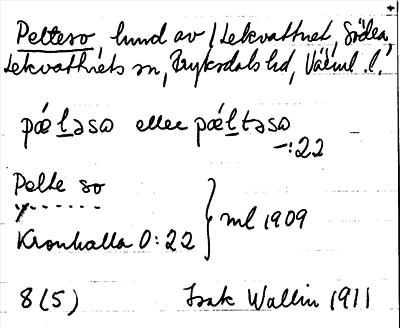 Pelteso, hund av /Lekvattnet, Södra,
Lekvattnets sn, Fryksdals hd, Värml. l.
pǽl̲əsɷ eller pǽl̲təsɷ
—:22
Pelle so
Kronkalla O:22 } ml 1909
8(5) Isak Wallin 1911